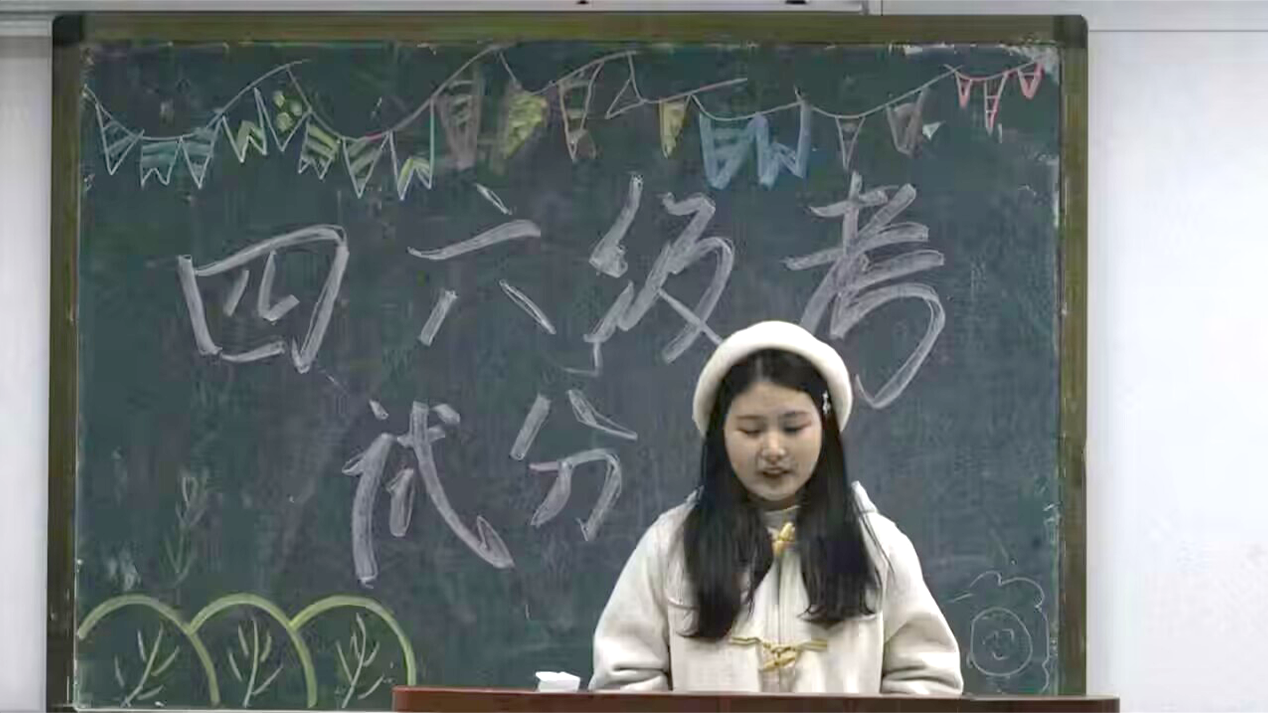 四六级考
试分